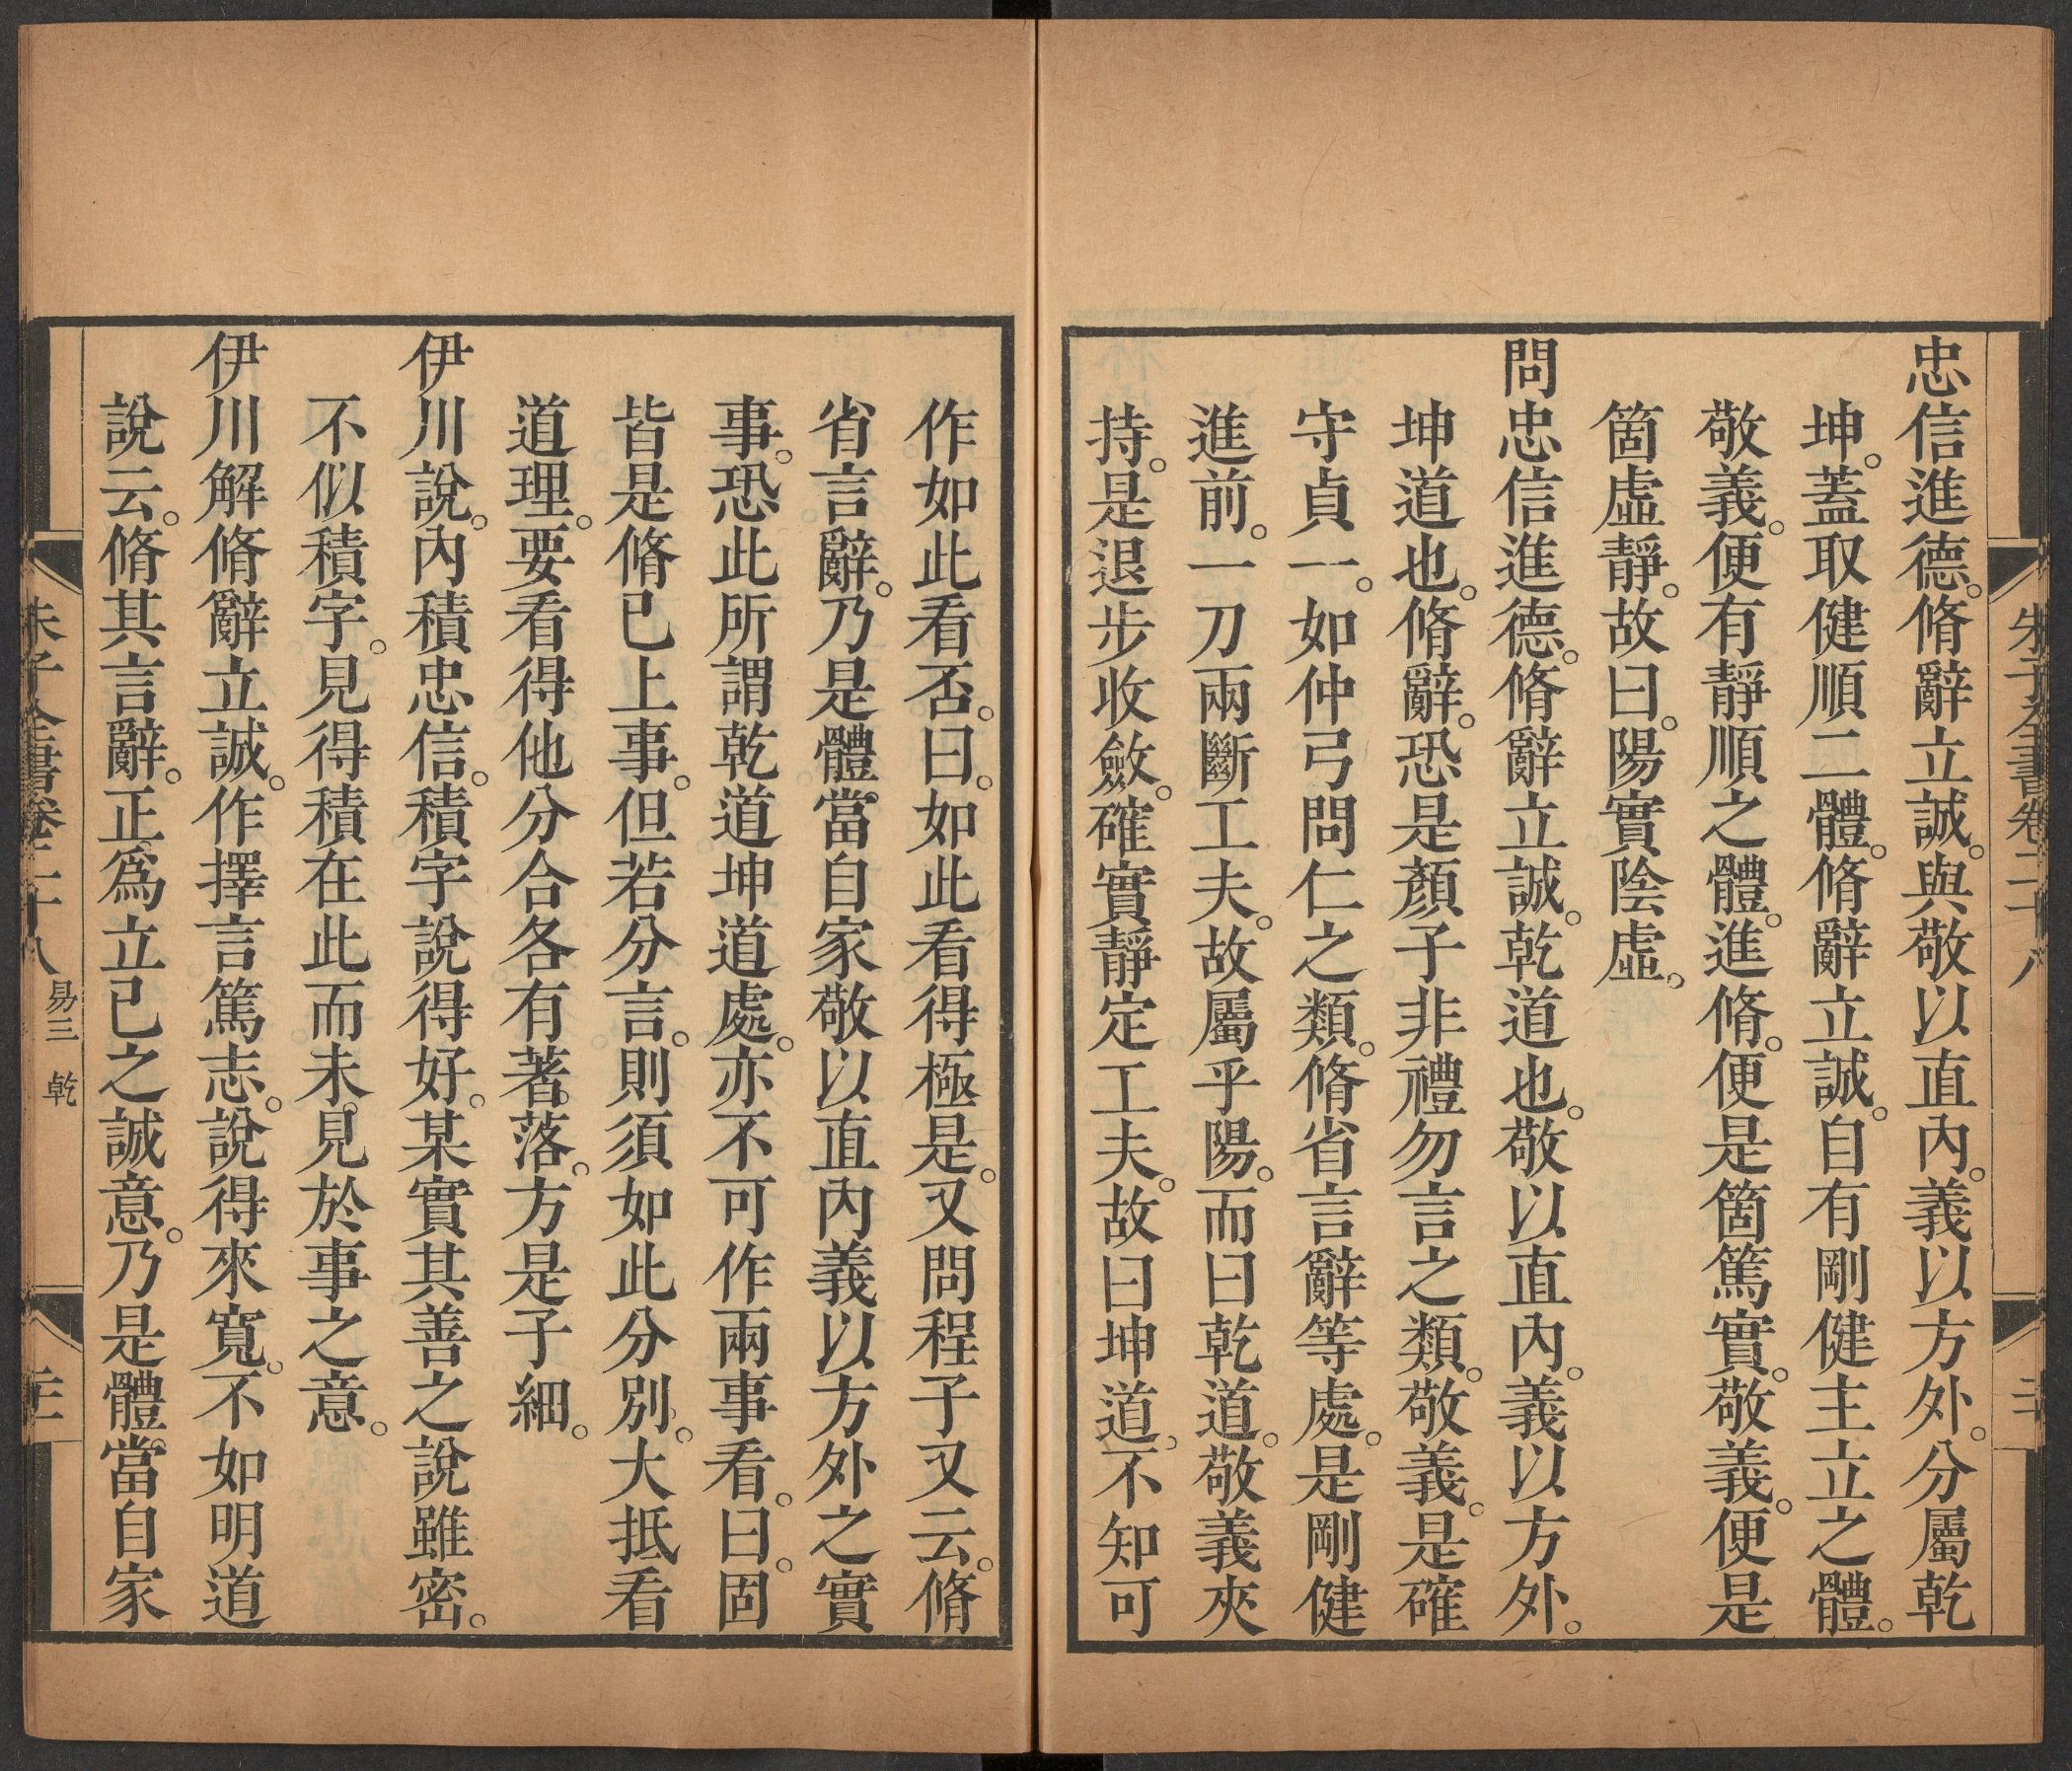 朱子全書卷二十八
忠信進德。脩辭立誠。與敬以直內。義以方外。分屬乾
坤。蓋取健順二體。脩辭立誠。自有剛健主立之體。
敬義。便有靜順之體。進脩。便是箇篤實。敬義。便是
箇虛靜。故曰。陽實陰虛。
問忠信進德。脩辭立誠。乾道也。敬以直內。義以方外。
坤道也。脩辭。恐是顏子非禮勿言之類。敬義。是確
守貞一。如仲弓問仁之類。脩省言辭等處。是剛健
進前。一刀兩斷工夫。故屬乎陽。而曰乾道。敬義夾
持。是退步收斂。確實靜定工夫。故曰坤道。不知可
作如此看否。曰。如此看得極是。又問程子又云。脩
省言辭。乃是體當自家敬以直內義以方外之實
事。恐此所謂乾道坤道處。亦不可作兩事看。曰。固
皆是脩己上事。但若分言。則須如此分別。大抵看
道理。要看得他分合各有著落。方是子細。
伊川說。內積忠信。積字說得好。某實其善之說雖密。
不似積字。見得積在此而未見於事之意。
伊川解脩辭立誠。作擇言篤志。說得來寬。不如明道
說云。脩其言辭。正爲立己之誠意。乃是體當自家
朱子全書卷二十八 易三 乾